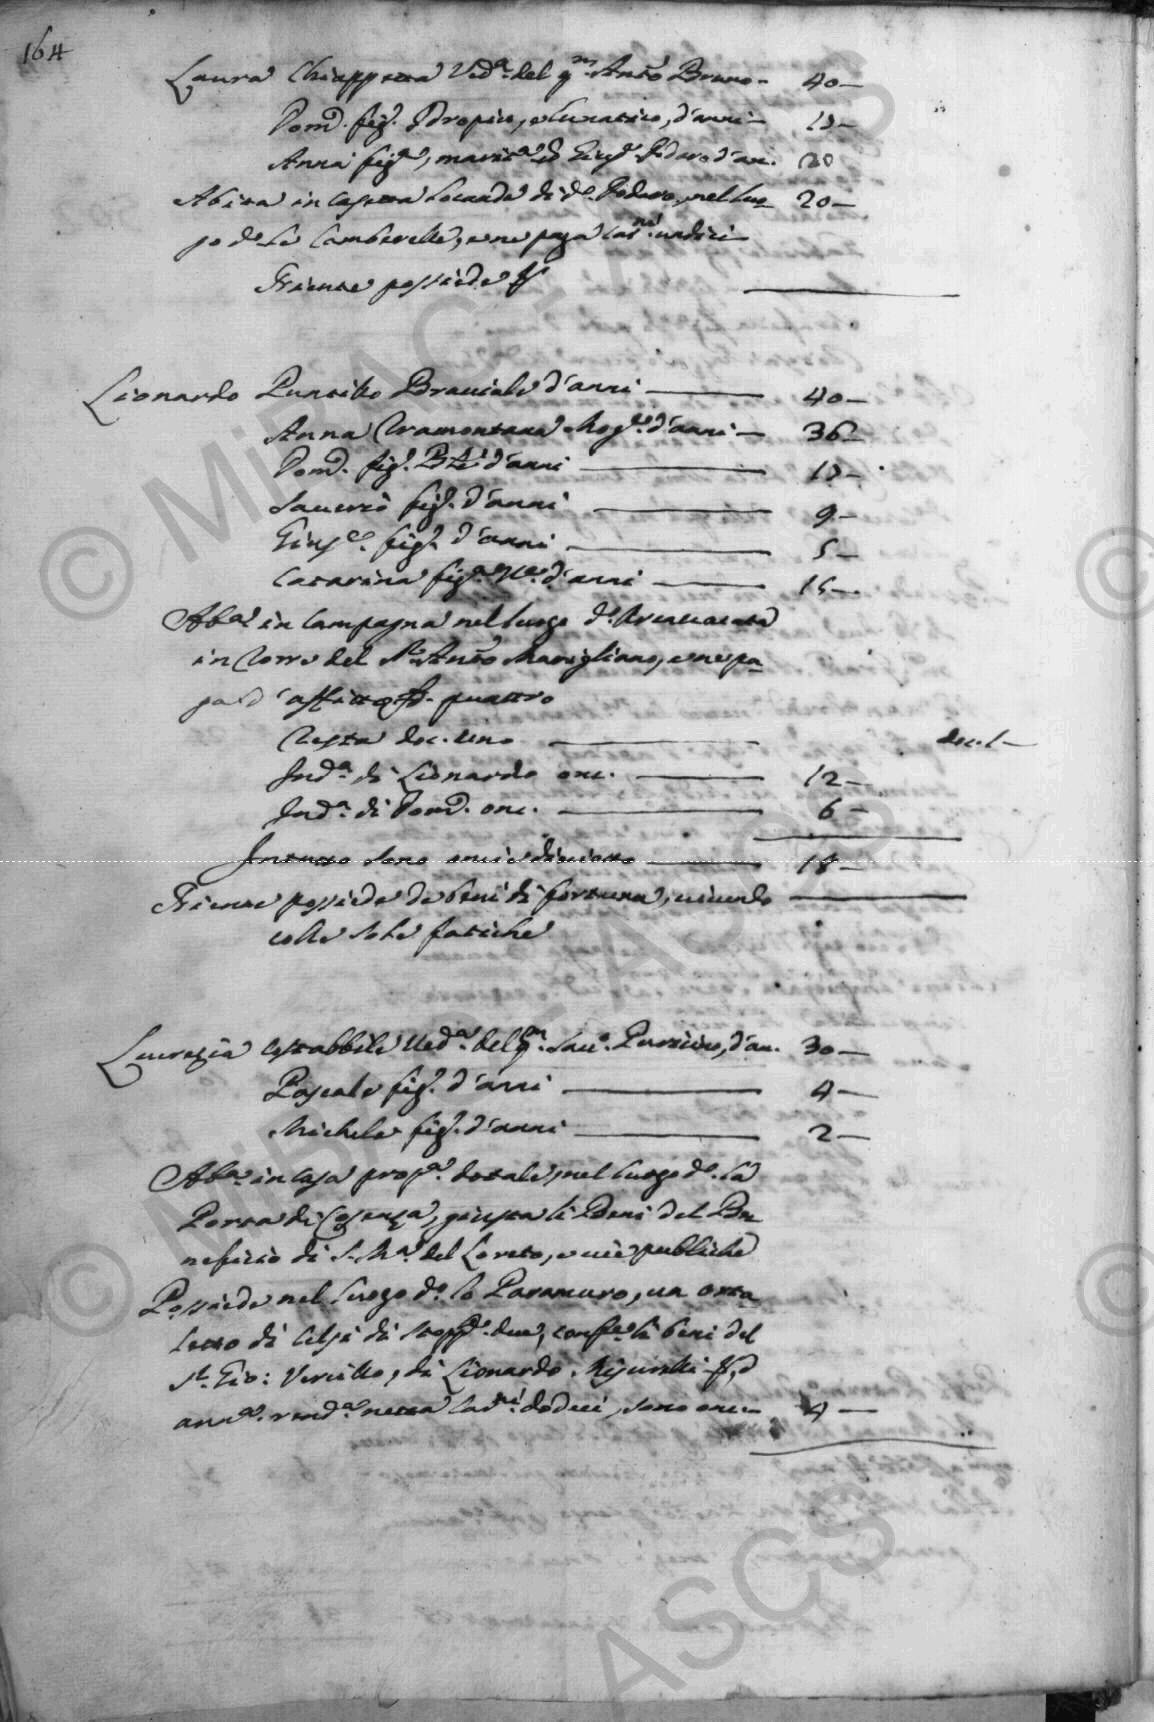 164
Laura Chiappetta Ved.ª del q.m Ant.º Bruno - 40 -
Dom.º fig.º Idropico, e lunatico, d'anni - 19 -
Anna fig.ª, marit.ª d'an. 20
Abita in casetta locanda di d.º Todero, nel luo- 20 -
go d.º Le Camberelle, e ne paga car.ni undici -
Niente possiede
Lionardo Puntillo Bracciale d'anni 40 -
Anna Tramontana Mog.e d'anni - 36 -
Dom.º fig.º d'anni 19 -
Saverio fig.º d'anni 9 -
Gius.e fig.º d'anni 5 -
Catarina fig.ª d'anni 15 -
Ab.ª in Campagna nel luogo d.º
in Torre del Ant.º Marigliano, e ne pa-
ga d'affitto quattro
Testa doc. uno doc. 1 -
Ind.ª di Lionardo onc. 12 -
Ind.ª di Dom.º onc. 6 -
In tutto sono oncie dieciotto 18 -
Niente possiede de beni di fortuna, vivendo
colle sole fatiche
Lucrezia Costabbile Ved.ª del q.m Sav.º d'an. 30 -
Pascale fig.º d'anni 4 -
Michele fig.º d'anni 2 -
Ab.ª in casa prop.ª dotale, nel luogo d.º la
Porta di Cosenza, giusta li Beni del Be-
neficio di S. M.ª del Loreto, e vie publiche
Possiede nel luogo d.º lo Paramuro, un orta-
letto di Celsi di due, conf.e li beni del
Gio: Vercillo, di Lionardo Migurelli
ann.ª rend.ª netta car.ni dodeci, sono onc. - 4 -
© MiBAC - ASCS
© MiBAC - ASCS
ASCS